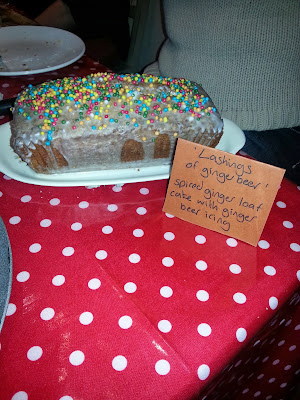 'Lashings
of ginger beer'
spiced ginger loaf
cake with ginger
beer icing